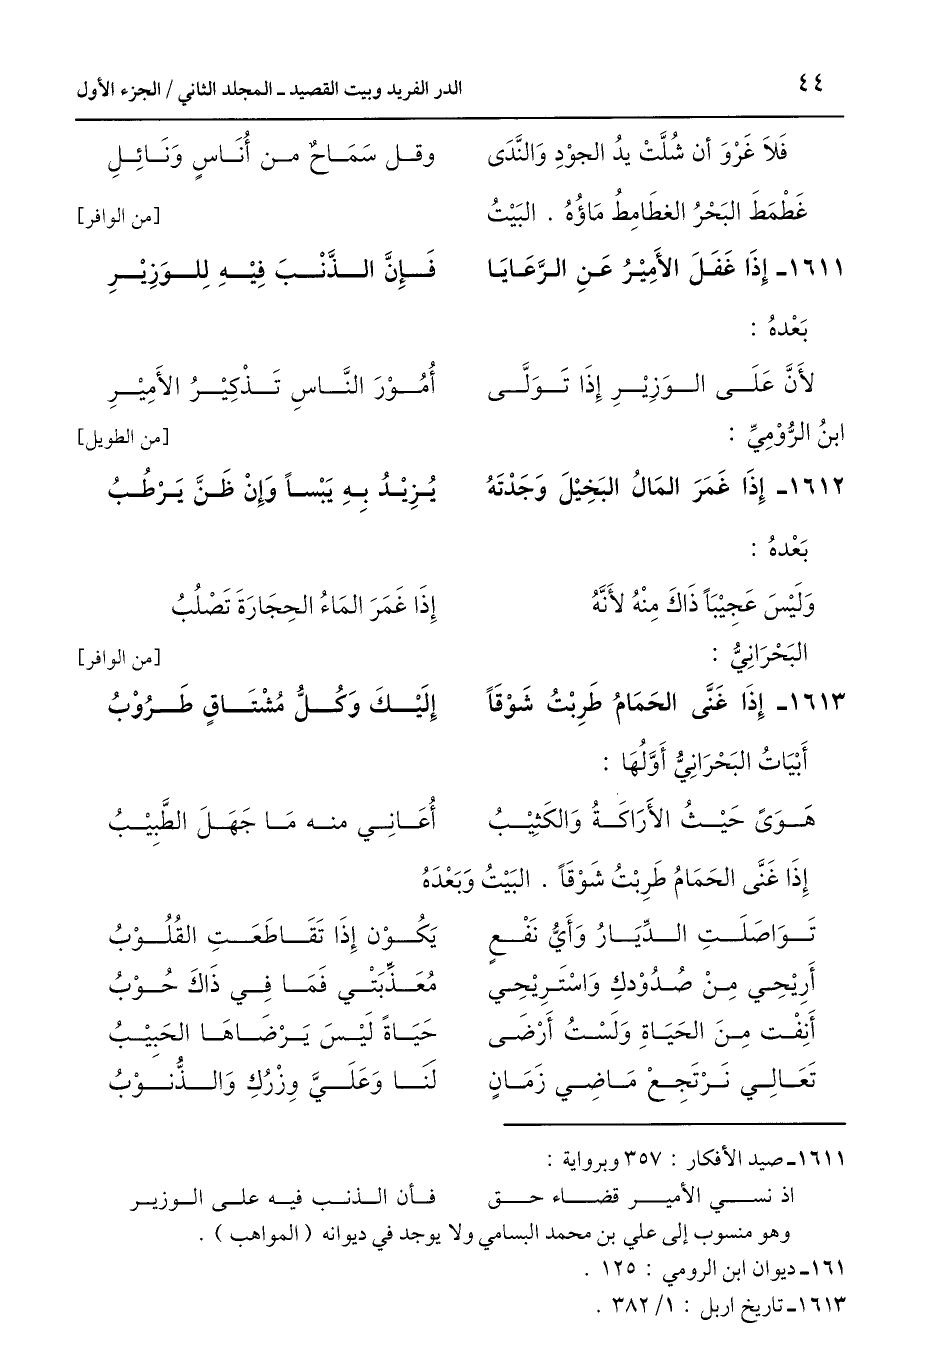 ٤٤ الدر الفريد وبيت القصيد ـ المجلد الثاني / الجزء الأول
فَلاَ غَرْوَ أن شُلَّتْ يدُ الجوْدِ وَالنَّدَى وقـل سَمَـاحٌ مـن أُنَـاسٍ وَنَـائِـلِ
غَطْمَطَ البَحْرُ الغطَامِطُ مَاؤُهُ . البَيْتُ [من الوافر]
١٦١١ـ إِذَا غَفَلَ الأَمِيْرُ عَـنِ الـرَّعَـايَـا فَـإِنَّ الـذَّنْـبَ فِيْـهِ لِلـوَزِيْـرِ
بَعْدهُ :
لأَنَّ عَلَـى الـوَزِيْـرِ إِذَا تَـوَلَّـى أُمُـوْرَ النَّـاسِ تَـذْكِيْـرُ الأَمِيْـرِ
ابنُ الرُّوْمِيِّ : [من الطويل]
١٦١٢ـ إِذَا غَمَرَ المَالُ البَخِيْلَ وَجَدْتَهُ يُـزِيْـدُ بِـهِ يَبْسـاً وَإِنْ ظَـنَّ يَـرْطَـبُ
بَعْدهُ :
وَلَيْسَ عَجِيْبَاً ذَاكَ مِنْهُ لأَنَّهُ إِذَا غَمَرَ المَاءُ الحِجَارَةَ تَصْلُبُ
البَحْرَانِيُّ : [من الوافر]
١٦١٣ـ إِذَا غَنَّى الحَمَامُ طَرِبْتُ شَوْقَاً إِلَيْـكَ وَكُـلُّ مُشْتَـاقٍ طَـرُوْبُ
أَبْيَاتُ البَحْرَانِيُّ أَوَّلُهَا :
هَـوَىً حَيْـثُ الأَرَاكَـةُ وَالكَثِيْـبُ أُعَـانِـي منـه مَـا جَهَـلَ الطَّبِيْـبُ
إِذَا غَنَّى الحَمَامُ طَرِبْتُ شَوْقَاً . البَيْتُ وَبَعْدَهُ
تَـوَاصَلَـتِ الـدِّيَـارُ وَأَيُّ نَفْـعٍ يَكُـوْن إِذَا تَقَـاطَعَـتِ القُلُـوْبُ
أَرِيْحِـي مِـنْ صُـدُوْدكِ وَاسْتَـرِيْحِـي مُعَـذِّبَتْـي فَمَـا فِـي ذَاكَ حُـوْبُ
أَنِفْـت مِـنَ الحَيَـاةِ وَلَسْـتُ أَرْضَـى حَيَـاةً لَيْـسَ يَـرْضَـاهَـا الحَبِيْـبُ
تَعَـالِـي نَـرْتَجِـعْ مَـاضِـي زَمَـانٍ لَنَـا وَعَلَـيَّ وِزْرُكِ وَالـذُّنُـوْبُ
١٦١١ـ صيد الأفكار : ٣٥٧ وبرواية :
اذ نسـي الأميـر قضـاء حـق فـأن الـذنـب فيـه علـى الـوزيـر
وهو منسوب إلى علي بن محمد البسامي ولا يوجد في ديوانه ( المواهب ) .
١٦١ـ ديوان ابن الرومي : ١٢٥ .
١٦١٣ـ تاريخ اربل : ١/ ٣٨٢ .